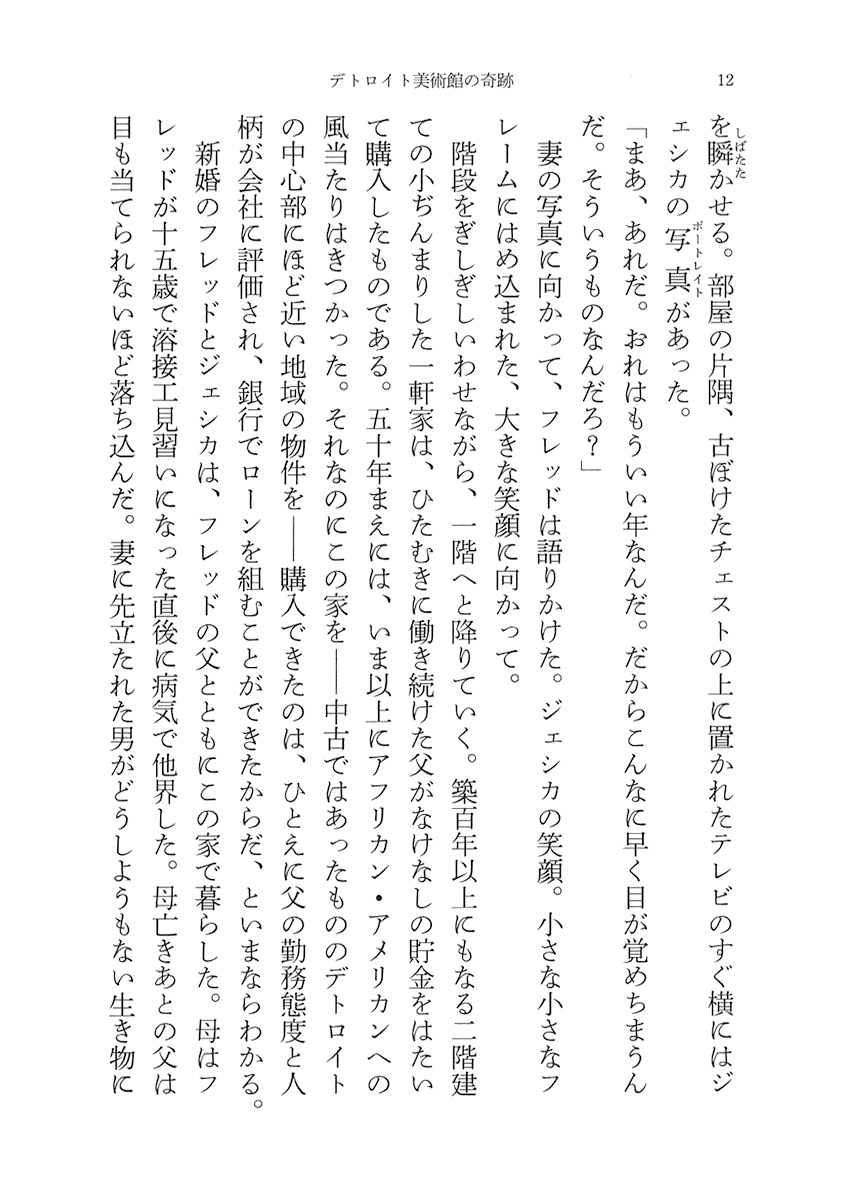 12
デトロイト美術館の奇跡
を瞬かせる。部屋の片隅、古ぼけたチェストの上に置かれたテレビのすぐ横にはジ
しばたた
ェシカの写真があった。
ポートレイト
「まあ、あれだ。おれはもういい年なんだ。だからこんなに早く目が覚めちまうん
だ。そういうものなんだろ？」
　妻の写真に向かって、フレッドは語りかけた。ジェシカの笑顔。小さな小さなフ
レームにはめ込まれた、大きな笑顔に向かって。
　階段をぎしぎしいわせながら、一階へと降りていく。築百年以上にもなる二階建
ての小ぢんまりした一軒家は、ひたむきに働き続けた父がなけなしの貯金をはたい
て購入したものである。五十年まえには、いま以上にアフリカン・アメリカンへの
風当たりはきつかった。それなのにこの家を――中古ではあったもののデトロイト
の中心部にほど近い地域の物件を――購入できたのは、ひとえに父の勤務態度と人
柄が会社に評価され、銀行でローンを組むことができたからだ、といまならわかる。
　新婚のフレッドとジェシカは、フレッドの父とともにこの家で暮らした。母はフ
レッドが十五歳で溶接工見習いになった直後に病気で他界した。母亡きあとの父は
目も当てられないほど落ち込んだ。妻に先立たれた男がどうしようもない生き物に